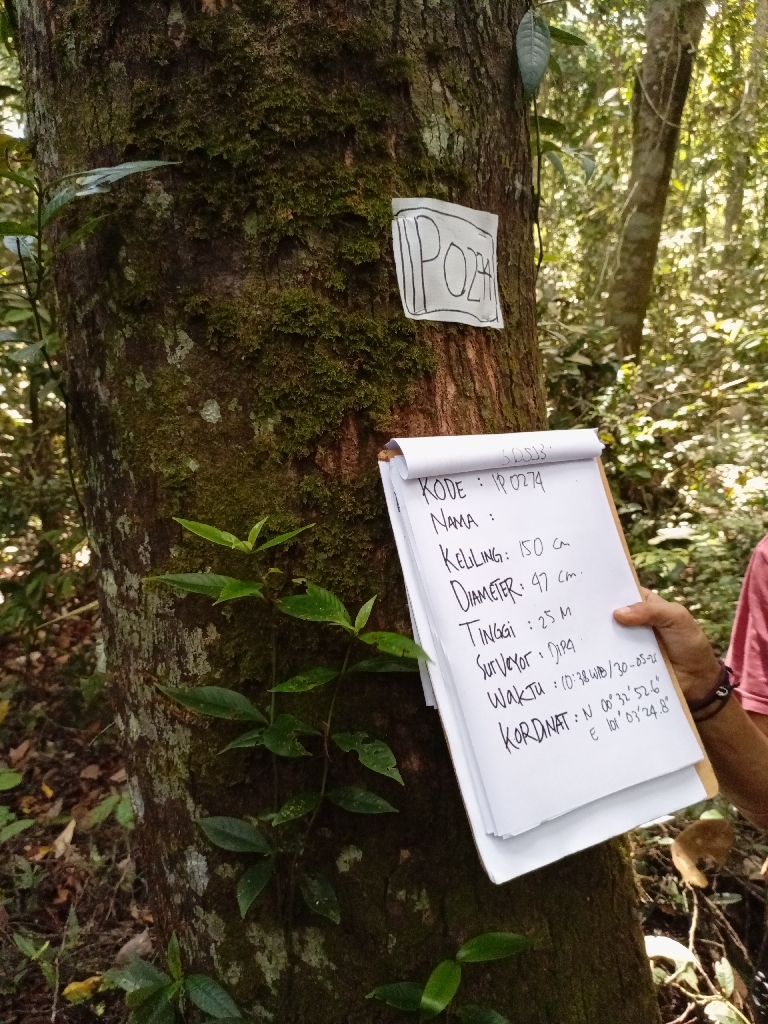 IP0274
KODE : IP0274
NAMA :
KELILING : 150 cm
DIAMETER : 47 cm.
TINGGI : 25 M
SURVEYOR : DIPA
WAKTU : 10:38 WIB / 30-05-21
KORDINAT : N 00° 32' 52.6"
E 101° 03' 24.8"